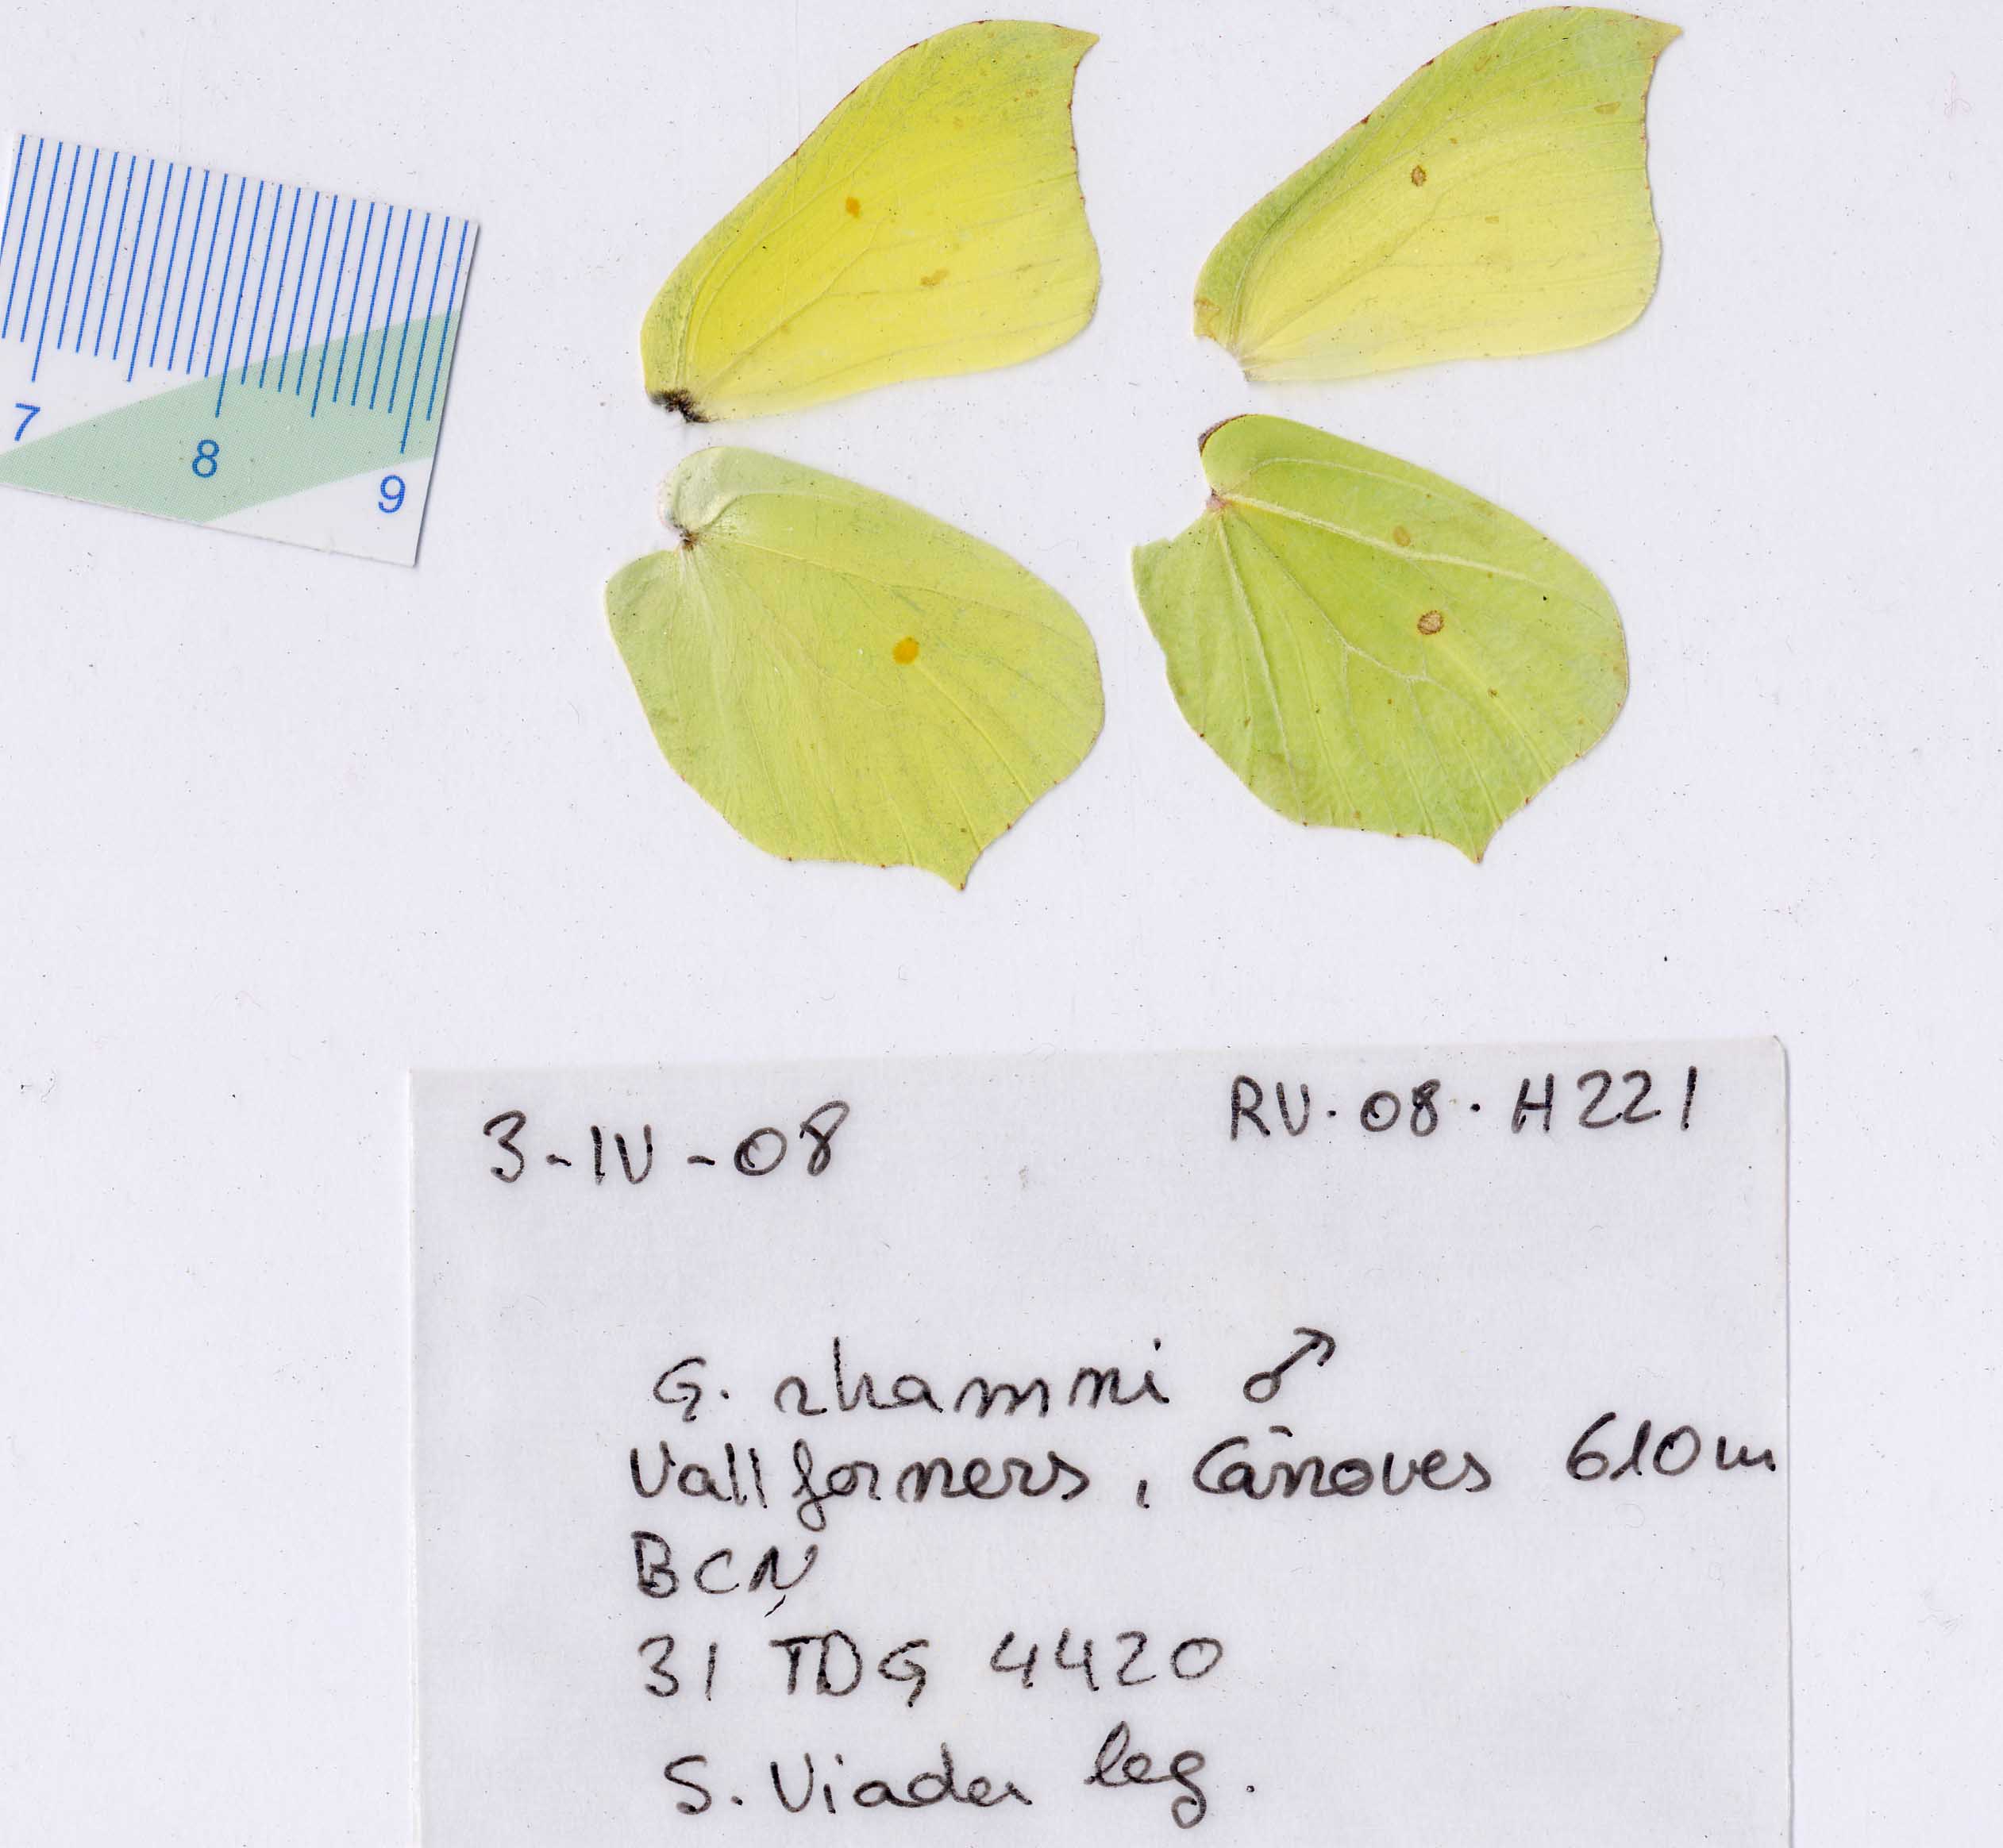 7
8
9
3-IV-08 RV·08·H221
G. rhamni ♂
Vallforners, Cànoves 610m
BCN
31 TDG 4420
S. Viader leg.